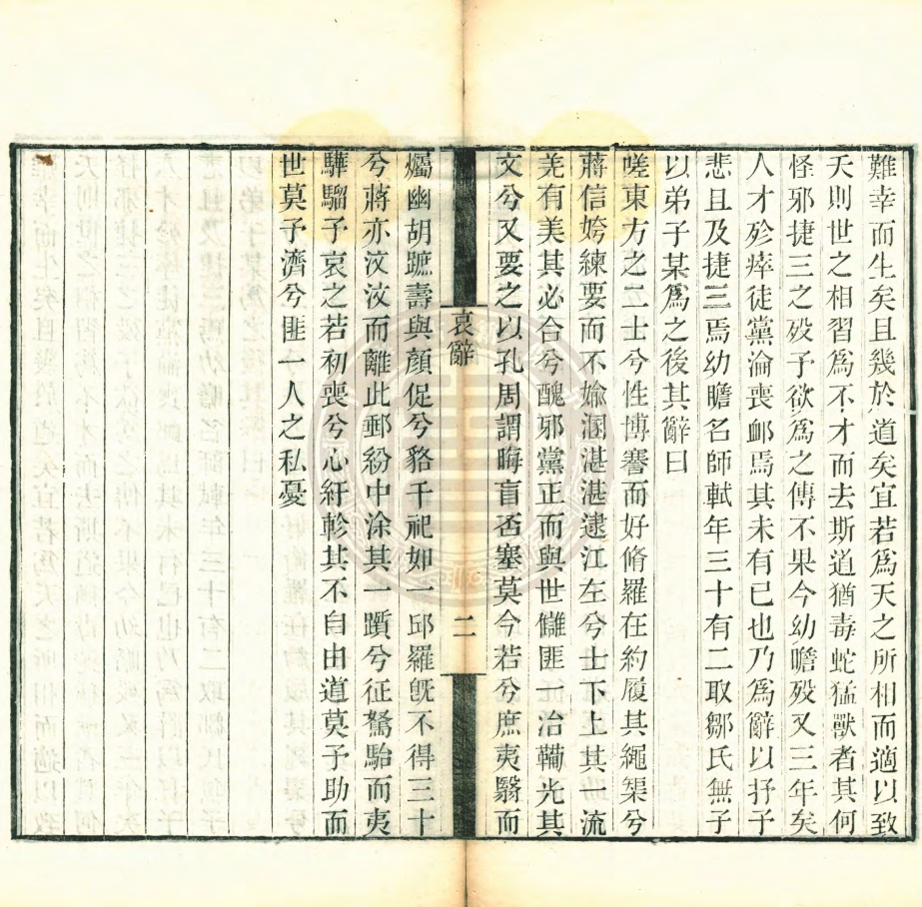 難幸而生矣且幾於道矣宜若爲天之所相而適以致
夭則世之相習爲不才而去斯道猶毒蛇猛獸者其何
怪邪捷三之歿予欲爲之傳不果今幼瞻歿又三年矣
人才殄瘁徒黨淪喪䘏焉其未有已也乃爲辭以抒予
悲且及捷三焉幼瞻名師軾年三十有二取鄒氏無子
以弟子某爲之後其辭曰
嗟東方之二士兮性博謇而好脩羅在約履其繩榘兮
蔣信姱練要而不媮溷湛湛逮江左兮士下上其一流
羌有美其必合兮醜邪黨正而與世讎匪治鞴光其
文兮又要之以孔周謂晦盲否塞莫今若兮庶夷翳而
爥幽胡蹠壽與顏促兮貉千祀如一邱羅旣不得三十
兮蔣亦汶汶而離此郵紛中涂其一躓兮征駑駘而夷
驊騮予哀之若初喪兮心紆軫其不自由道莫予助而
世莫予濟兮匪一人之私憂
哀辭
二